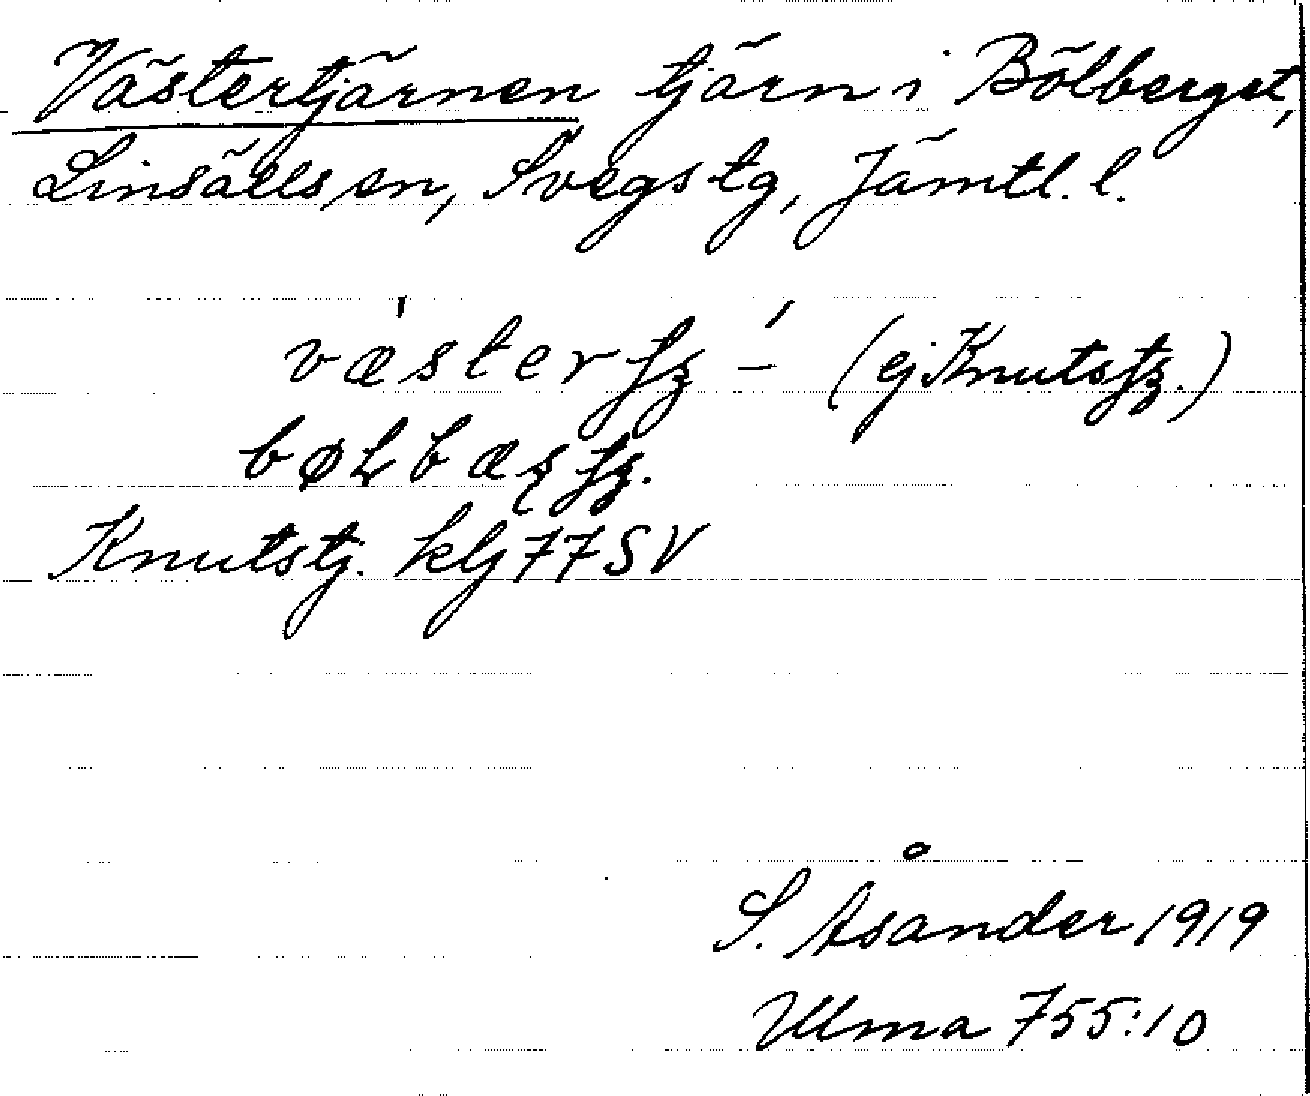 Västertjärnen tjärn i Bölberget,
Linsälls sn, Svegs tg, Jämtl. l.
væster fʒ – (ej Knutsfʒ.)
bøɫbæʒ fʒ.
Knutstj. klj 77 SV
S. Åsander 1919
Ulma 755:10